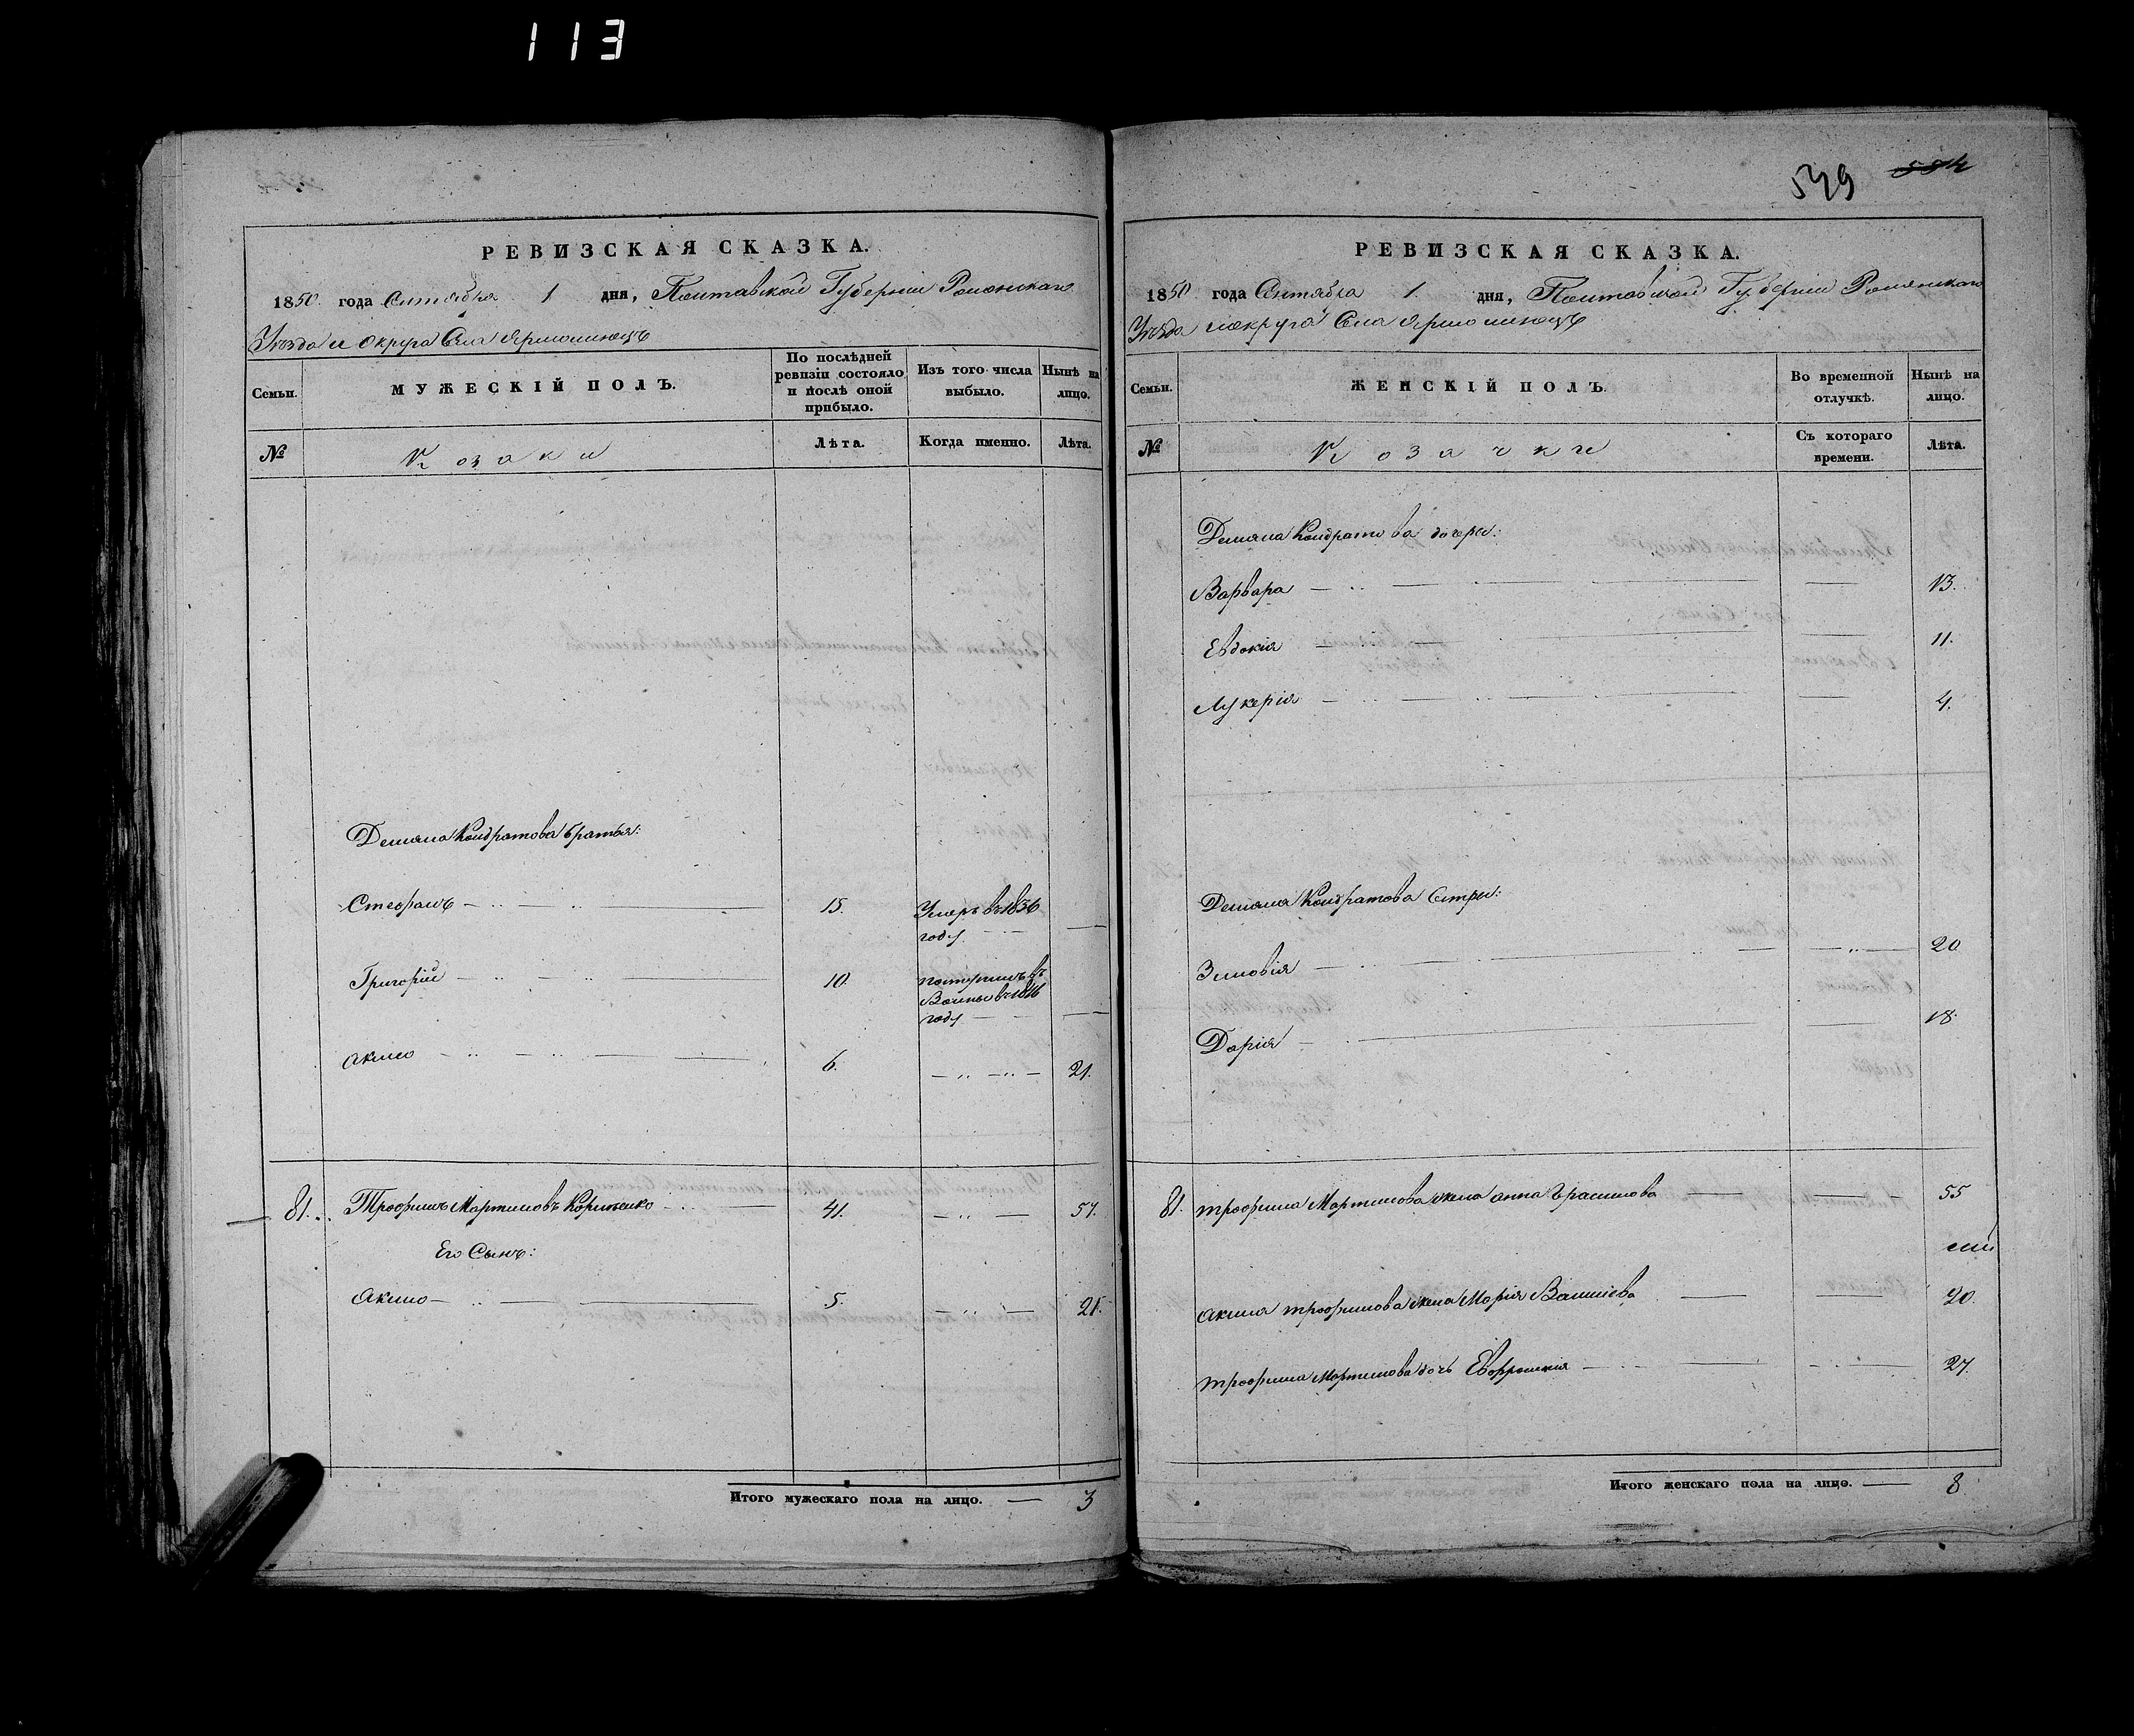 113
РЕВИЗСКАЯ СКАЗКА.
1850 года Сентября 1 дня, Полтавской Губернии Роменскаго
Уезда и Округа Села Ярмолинецъ
Семьи.
МУЖЕСКІЙ ПОЛЪ.
По послѣдней ревизіи состояло, и послѣ оной прибыло.
Изъ того числа выбыло.
Нынѣ на лицо.
№
Козаки
Лѣта.
Когда именно.
Лѣта.
Демяна Кондратова братья:
Стефанъ 15. Умеръ въ 1836
году
Григорій 10. въ
въ
году
Акимъ 6. 21.
81. Трофимъ Мартиновъ 41. 57.
Его Сынъ:
Акимъ 5. 21.
Итого мужескаго пола на лицо. 3
539 554
РЕВИЗСКАЯ СКАЗКА.
1850 года Сентября 1. дня, Полтавской Губерніи Роменскаго
Уезда и округа Села Ярмолинецъ
Семьи.
ЖЕНСКІЙ ПОЛЪ.
Во временной отлучкѣ.
Нынѣ на лицо.
№
Козачки
Съ котораго времени.
Лѣта.
Демяна Кондратова дочери:
Варвара 13.
Евдокія 11.
Лукерія 4.
Демяна Кондратова Сестры:
Зиновія 20
Дарія 18.
81. Трофима Мартинова жена Анна Герасимова 55
Акима Трофимова жена Марія 20.
Трофима Мартинова дочь Евфросинія 27.
Итого женскаго пола на лицо. 8